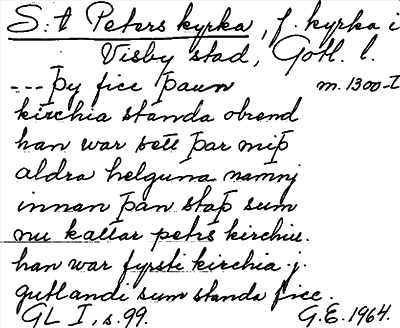 S:t Peters kyrka, f. kyrka i
Visby stad, Gotl. l.
--- þy fice þaun m. 1300-t
kirchia standa obrend
han war sett þar miþ
aldra helguna namnj
innan þan staþ sum
nu kallar petrs kirchiu.
han war fyrsti kirchia j.
gutlandi sum standa fice.
GL I, s. 99. G.E. 1964.